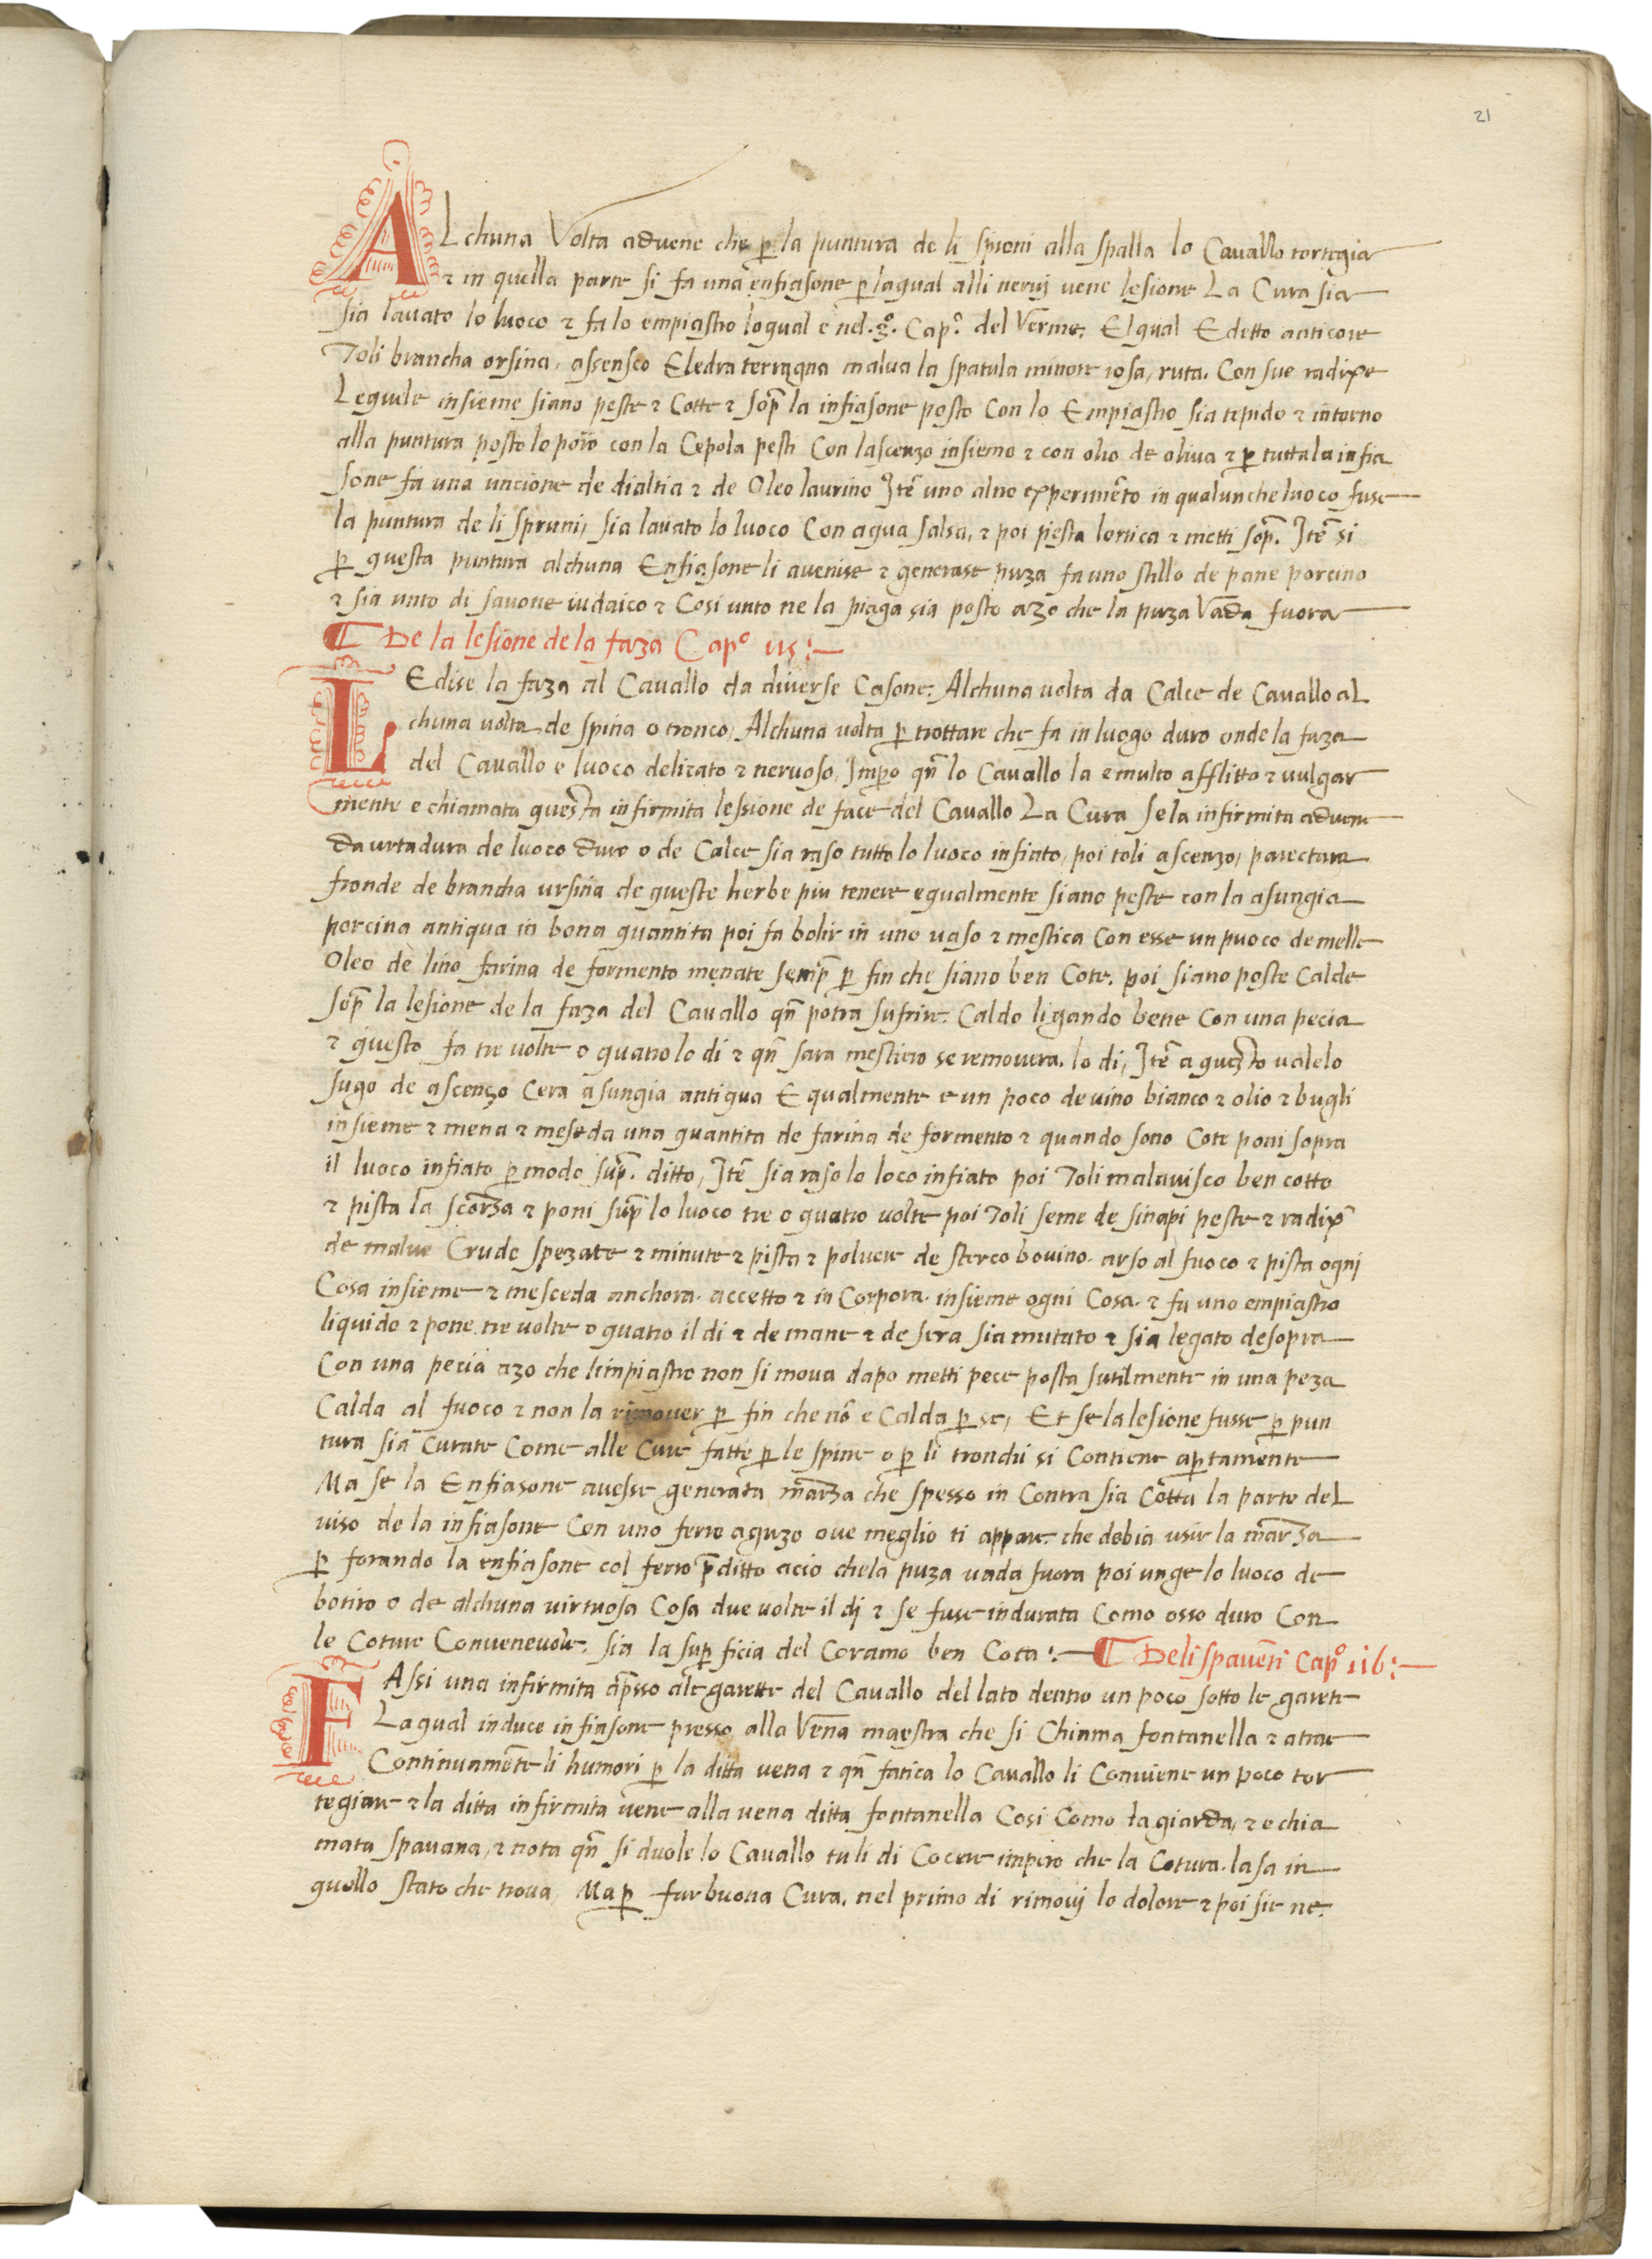 21
ALchuna Volta advene che p̱ la puntura de li sproni alla spalla lo Cavallo tortegia
⁊ in quella parte si fa una enfiasone p̱ laqual alli nervij vene lesione La Cura sia
sia lavato lo luoco ⁊ fa lo empiastro loqual e nel Capº del Verme. El qual E detto anticore
Toli brancha orsina, assensco Eledra terragna malva la spatula minore rosa, ruta. Con sue radixe
Lequale insieme siano peste ⁊ Cotte ⁊ sop̄ la infiasone posto Con lo Empiastro sia tepido ⁊ intorno
alla puntura posto lo poro con la Cepola pesti Con lascenzo insieme ⁊ con olio de oliva ⁊ p̱ tutta la infia
sone fa una uncione de dialtia ⁊ de Oleo laurino Itē uno altro experimēto in qualunche luoco fuse
la puntura de li spruni, sia lavato lo luoco Con aqua salsa, ⁊ poi pesta lortica ⁊ metti sop̄. Itē si
p̱ questa puntura alchuna Enfiasone li avenise ⁊ generase puza fa uno stillo de pane porcino
⁊ sia unto di savone iudaico ⁊ Cosi unto ne la piaga sia posto azo che la puza Vada fuora
¶ De la lesione de la faza Capº 115:—
LEdise la faza al Cavallo da diverse Casone: Alchuna volta da Calce de Cavallo al
chuna volta de spina o tronco, Alchuna volta p̱ trottare che fa in luogo duro onde la faza
del Cavallo e luoco delicato ⁊ nervoso, Imp̱o qn̄ lo Cavallo la e multo afflitto ⁊ vulgar
mente e chiamata questa infirmita lessione de face del Cavallo La Cura Se la infirmita advene
da urtadura de luoco duro o de Calce sia raso tutto lo luoco infiato, poi toli ascenzo, parectara
fronde de brancha ursina de queste herbe piu tenere egualmente siano peste con la asungia
porcina antiqua in bona quantita poi fa bolir in uno vaso ⁊ mestica Con esse un puoco de melle
Oleo de lino farina de formento menate semp̄ p̱ fin che siano ben Cote. poi siano poste Calde
sop̄ la lesione de la faza del Cavallo qn̄ potra sufrire. Caldo ligando bene Con una pecia
⁊ questo fa tre volte o quatro lo di ⁊ qn̄ sara mestiero se removera. lo di, Itē a questo vale lo
sugo de ascenzo Cera asungia antiqua E qualmente e un poco de vino bianco ⁊ olio ⁊ bugli
insieme ⁊ mena ⁊ meseda una quantita de farina de formento ⁊ quando sono Cote poni sopra
il luoco infiato p̱ modo sup̄. ditto, Itē sia raso lo loco infiato poi Toli malavisco ben cotto
⁊ pista la scorza ⁊ poni sup̄ lo luoco tre o quatro volte poi Toli seme de sinapi peste ⁊ radix̄
de malve Crude spezate ⁊ minute ⁊ pista ⁊ polvere de sterco bovino. arso al fuoco ⁊ pista ogni
Cosa insieme ⁊ mesceda anchora. accetto ⁊ in Corpora. insieme ogni Cosa. ⁊ fa uno empiastro
liquido ⁊ pone tre volte o quatro il di ⁊ de mane ⁊ de sera sia mutato ⁊ sia legato desopra
Con una pecia azo che limpiastro non si mova dapo metti pece posta sutilmente in una peza
Calda al fuoco ⁊ non la rimover p̱ fin che nō e Calda p̱ se, Et se la lesione fusse p̱ pun
tura sia Curate Come alle Cure fatte p̱ le spine o p̱ li tronchi si Contiene ap̱tamente
Ma se la Enfiasone avesse generata marza che spesso in Contra sia Cotta la parte del
viso de la infiasone Con uno ferro aguzo ove meglio ti appare. che debia usir la marza
p̱ forando la enfiasone col ferro p̄ditto acio che la puza vada fuora poi unge lo luoco de
botiro o de alchuna virtuosa Cosa due volte il dj ⁊ se fuse indurata Como osso duro Con
le Coture Convenevole. sia la sup̱ficia del Coramo ben Cota:— ¶ De li spavēti Capº 116:—
FAssi una infirmita ap̄sso ale garette del Cavallo del lato dentro un poco sotto le garete
La qual induce infiasone presso alla Vena maestra che si Chiama fontanella ⁊ atrae
Continuamēte li humori p̱ la ditta vena ⁊ qn̄ fatica lo Cavallo li Conviene un poco tor
tegiare ⁊ la ditta infirmita vene alla vena ditta fontanella Cosi Como la giarda, ⁊ e chia
mata spavana, ⁊ nota qn̄ si duole lo Cavallo tu li di Cocere impero che la Cotura. lasa in
quello stato che trova, Ma p̱ far buona Cura. nel primo di rimovij lo dolore ⁊ poi sie ne.